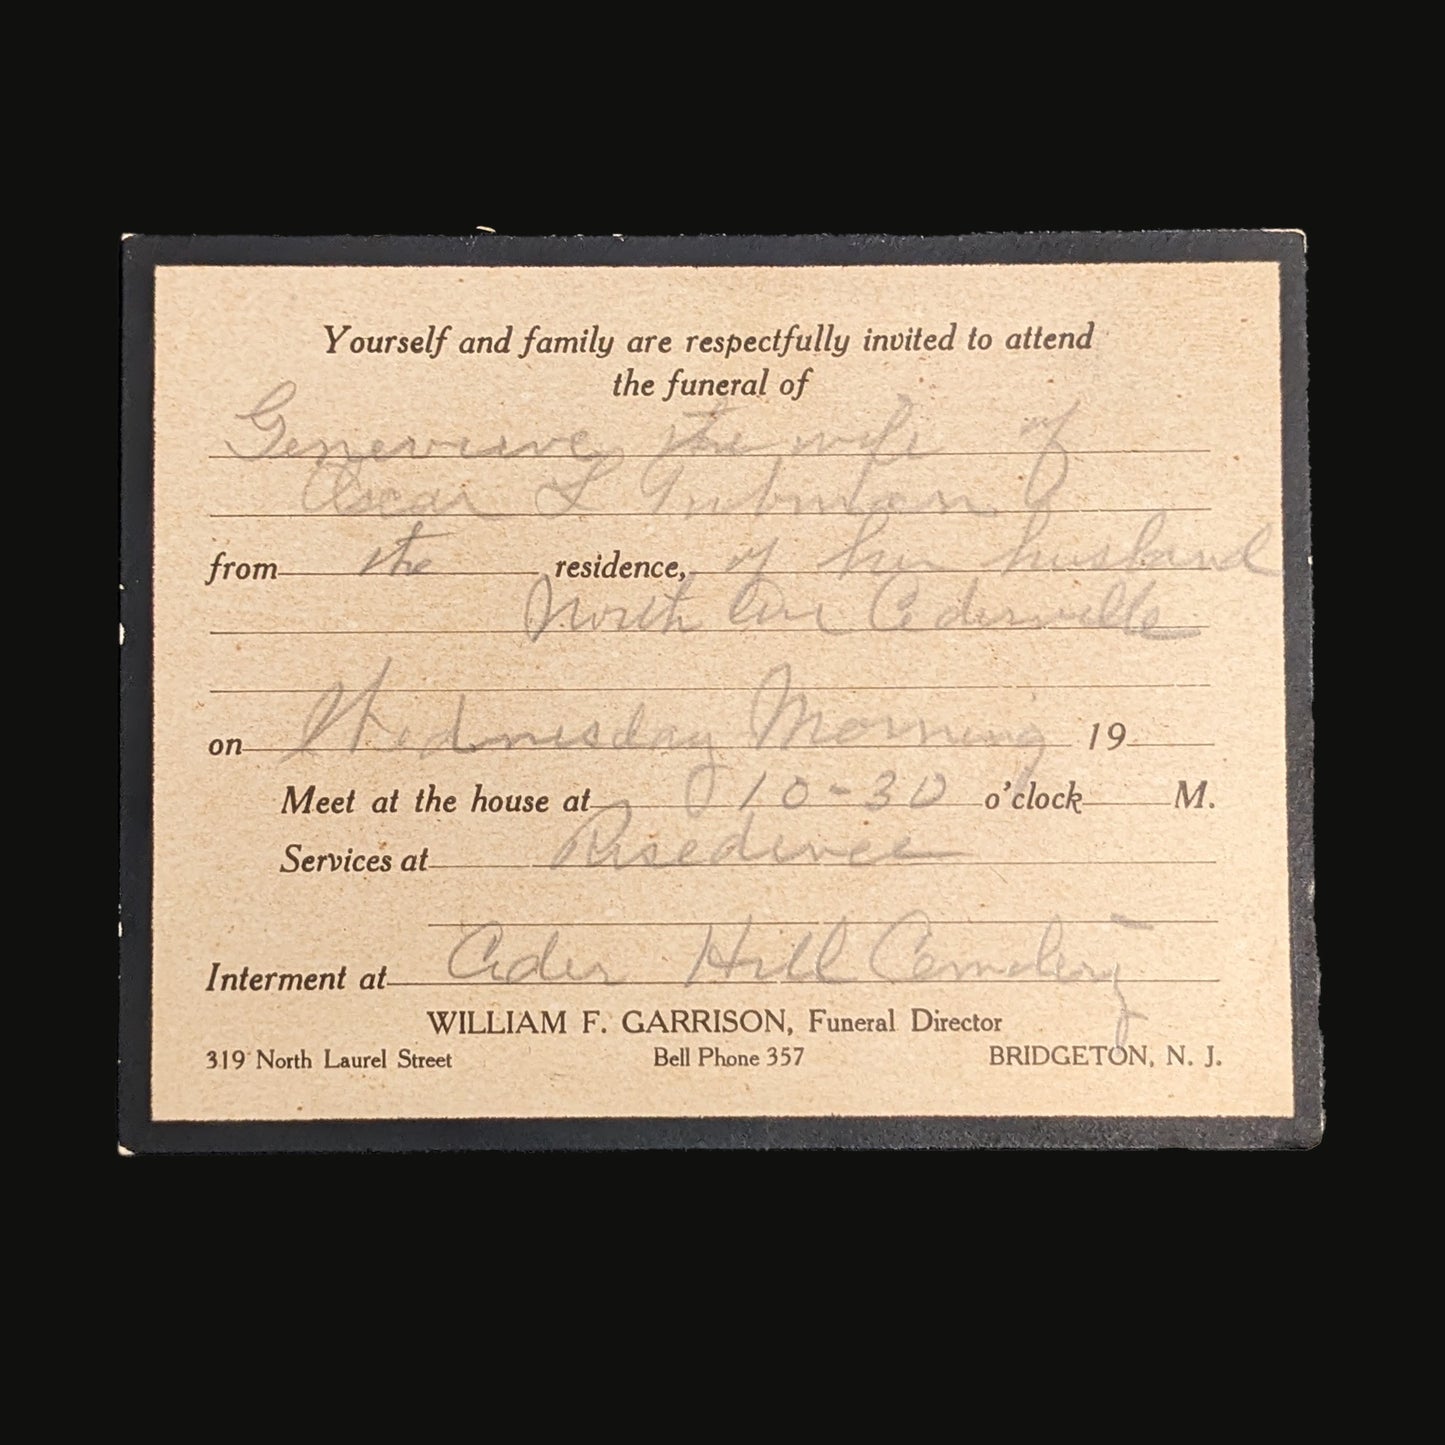 Yourself and family are respectfully invited to attend
the funeral of
Genevieve the wife of
Oscar L
from the residence, of her husband
North Ave Cedarville
on Wednesday Morning 19
Meet at the house at 10-30 o'clock M.
Services at Residence
Interment at Ceder Hill Cemetery
WILLIAM F. GARRISON, Funeral Director
319 North Laurel Street Bell Phone 357 BRIDGETON, N. J.